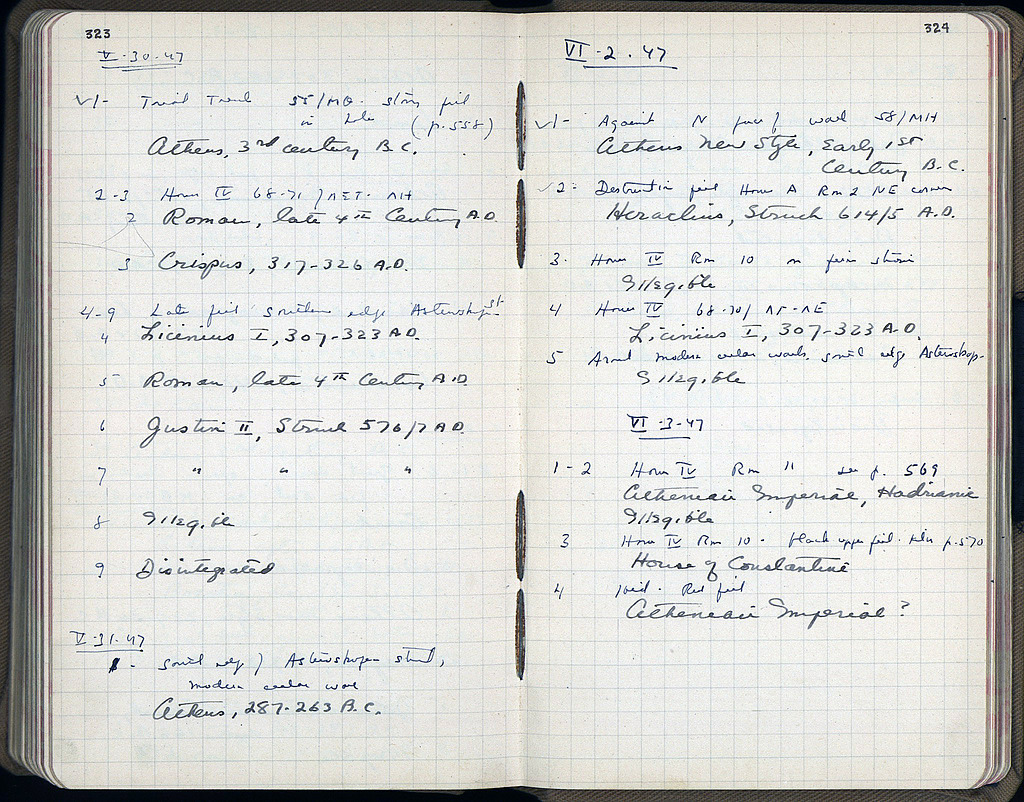 323
V-30-47
√1- Trial Trench 55/ΜΘ. stony fill
in hole (p.558)
Athens, 3rd century B.C.
2-3 House IV 68-71 /ΛΣΤ-ΛΗ
2 Roman, late 4th Century A.D.
3 Crispus, 317-326 A.D.
4-9 Late fill southern edge Asteroskopeion St.
4 Licinius I, 307-323 A.D.
5 Roman, late 4th Century A.D.
6 Justin II, Struck 576/7 A.D.
7 " " "
8 Illegible
9 Disintegrated
V-31-47
1- South edge of Asteroskopeion street,
modern cellar wall
Athens, 287-263 B.C.
324
VI-2-47
√1- Against N face of wall 58/ΜΗ
Athens New Style, Early 1st
Century B.C.
√2- Destruction fill House A Rm 2 NE corner
Heraclius, Struck 614/5 A.D.
3- House IV Rm 10 on
Illegible
4 House IV 68-70/
Licinius I, 307-323 A.D.
5 Around modern cellar walls, south edge Asterskop-
Illegible
VI-3-47
1-2 House IV Rm 11 see p. 569
Athenian Imperial, Hadrianic
Illegible
3 House IV Rm 10 - black upper fill. p.570
House of Constantine
4 ibid. Red fill
Athenian Imperial?